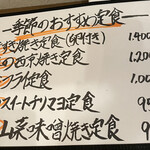 季節のおすすめ定食
き焼き定食(卵付き) 1,400
の西京焼き定食 1,200
フライ定食 1,00
スイートチリマヨ定食 95
山菜味噌焼き定食 9